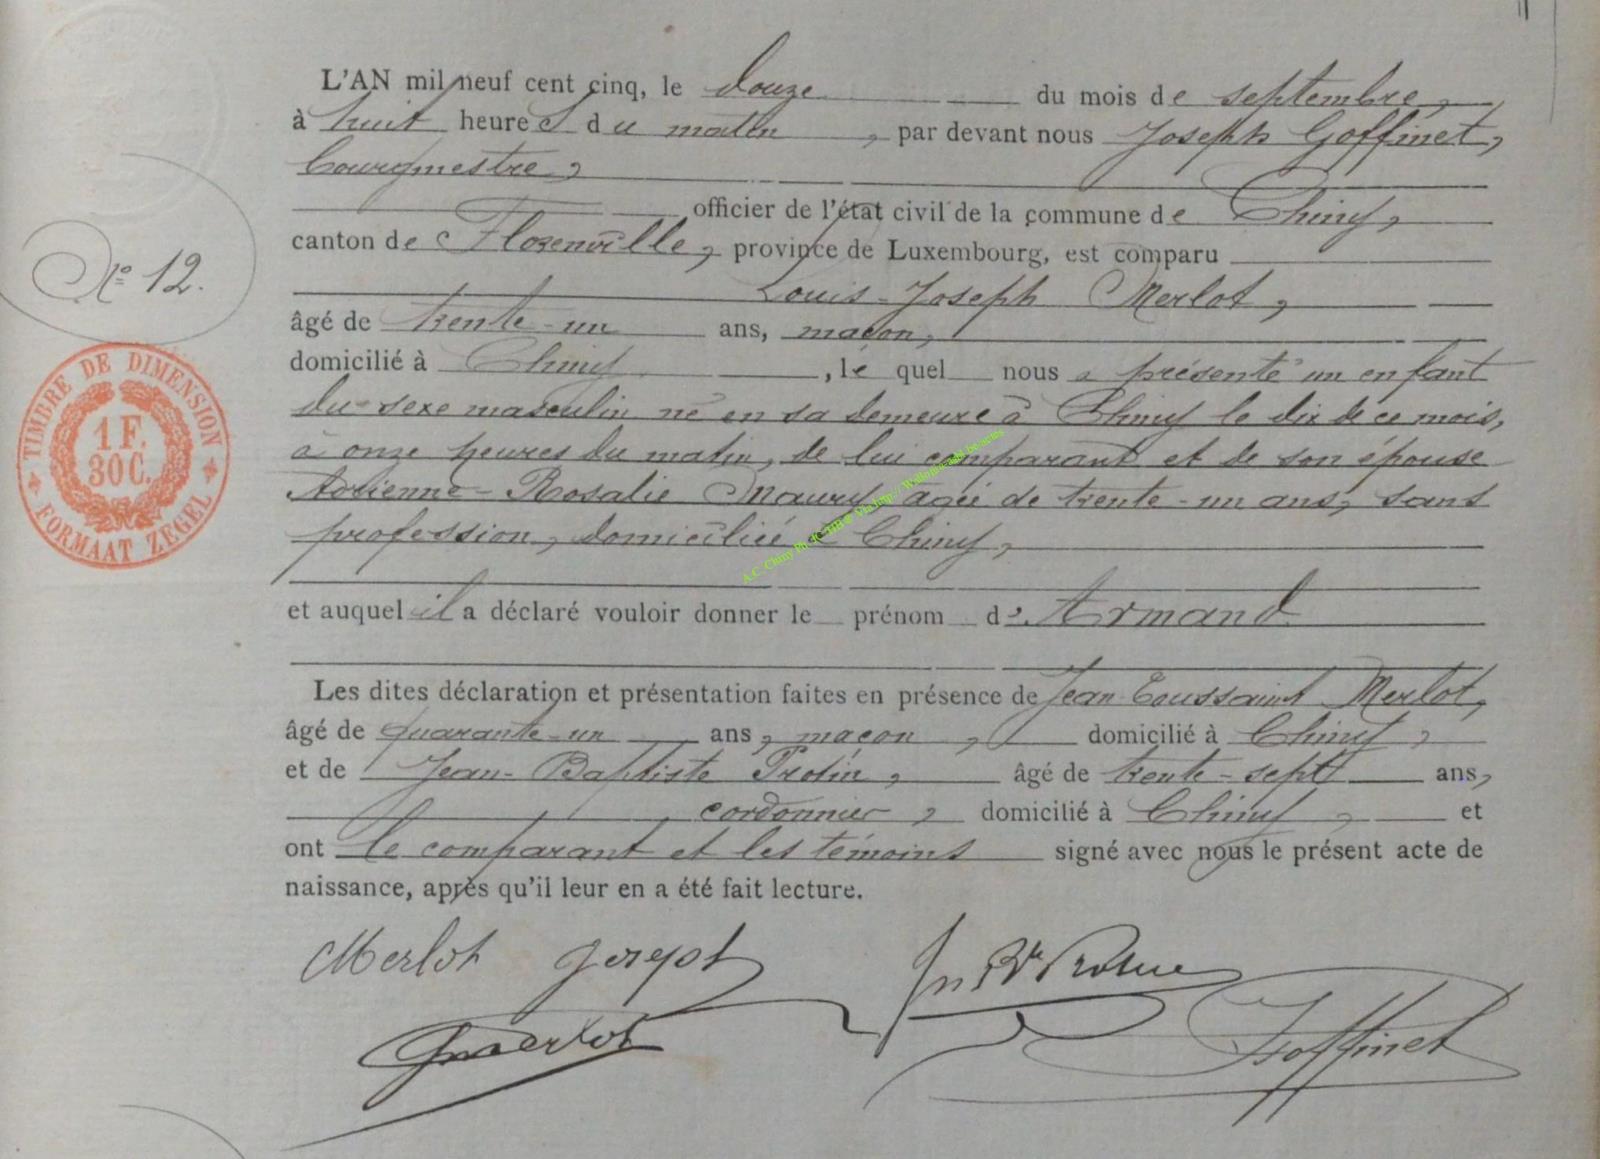 L'AN mil neuf cent cinq, le douze du mois de septembre,
à huit heures du matin, par devant nous Joseph Goffinet,
bourgmestre,
officier de l'état civil de la commune de Chiny,
canton de Florenville, province de Luxembourg, est comparu
N° 12.
Louis-Joseph Merlot,
âgé de trente-un ans, maçon,
domicilié à Chiny, lequel nous a présenté un enfant
du sexe masculin né en sa demeure à Chiny le dix de ce mois,
à onze heures du matin, de lui comparant et de son épouse
Adrienne-Rosalie Maury, âgée de trente-un ans, sans
profession, domiciliée à Chiny,
et auquel il a déclaré vouloir donner le prénom de Armand
Les dites déclaration et présentation faites en présence de Jean-Toussaint Merlot,
âgé de quarante-un ans, maçon, domicilié à Chiny,
et de Jean-Baptiste Protin, âgé de trente-sept ans,
cordonnier, domicilié à Chiny, et
ont le comparant et les témoins signé avec nous le présent acte de
naissance, après qu'il leur en a été fait lecture.
Merlot Joseph
Jn Bte Protin
Merlot
Goffinet
TIMBRE DE DIMENSION
1 F.
30 C.
FORMAAT ZEGEL
A.C. Chiny